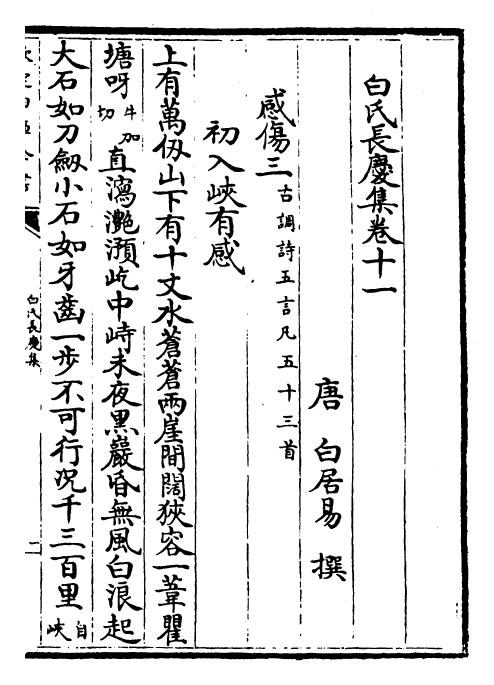 白氏長慶集卷十一
唐 白居易 撰
感傷三 古調詩五言凡五十三首
初入峽有感
上有萬仭山下有十丈水蒼蒼兩崖間闊狹容一葦瞿
塘呀 牛加切 直瀉灧澦屹中峙未夜黒巖昏無風白浪起
大石如刀劒小石如牙齒一步不可行況千三百里 自峽
白氏長慶集